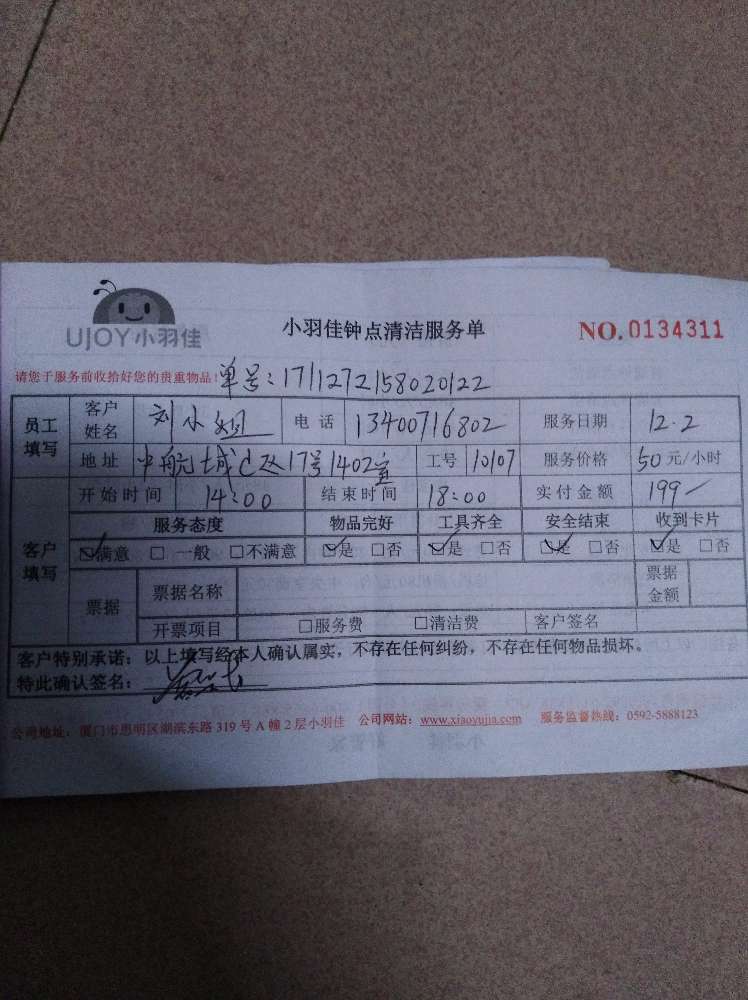 UJOY小羽佳
小羽佳钟点清洁服务单
NO.0134311
请您于服务前收拾好您的贵重物品！单号：1711272158020122
员工填写 客户姓名 刘小姐 电话 13400716802 服务日期 12.2
地址 中航城 17号1402室 工号 10107 服务价格 50元/小时
客户填写 开始时间 14:00 结束时间 18:00 实付金额 199
服务态度 物品完好 工具齐全 安全结束 收到卡片
☑满意 □一般 □不满意 ☑是 □否 ☑是 □否 ☑是 □否 ☑是 □否
票据 票据名称 票据金额
开票项目 □服务费 □清洁费 客户签名
客户特别承诺：以上填写经本人确认属实，不存在任何纠纷，不存在任何物品损坏。
特此确认签名：
公司地址：厦门市思明区湖滨东路319号A幢2层小羽佳 公司网站：www.xiaoyujia.com 服务监督热线：0592-5888123